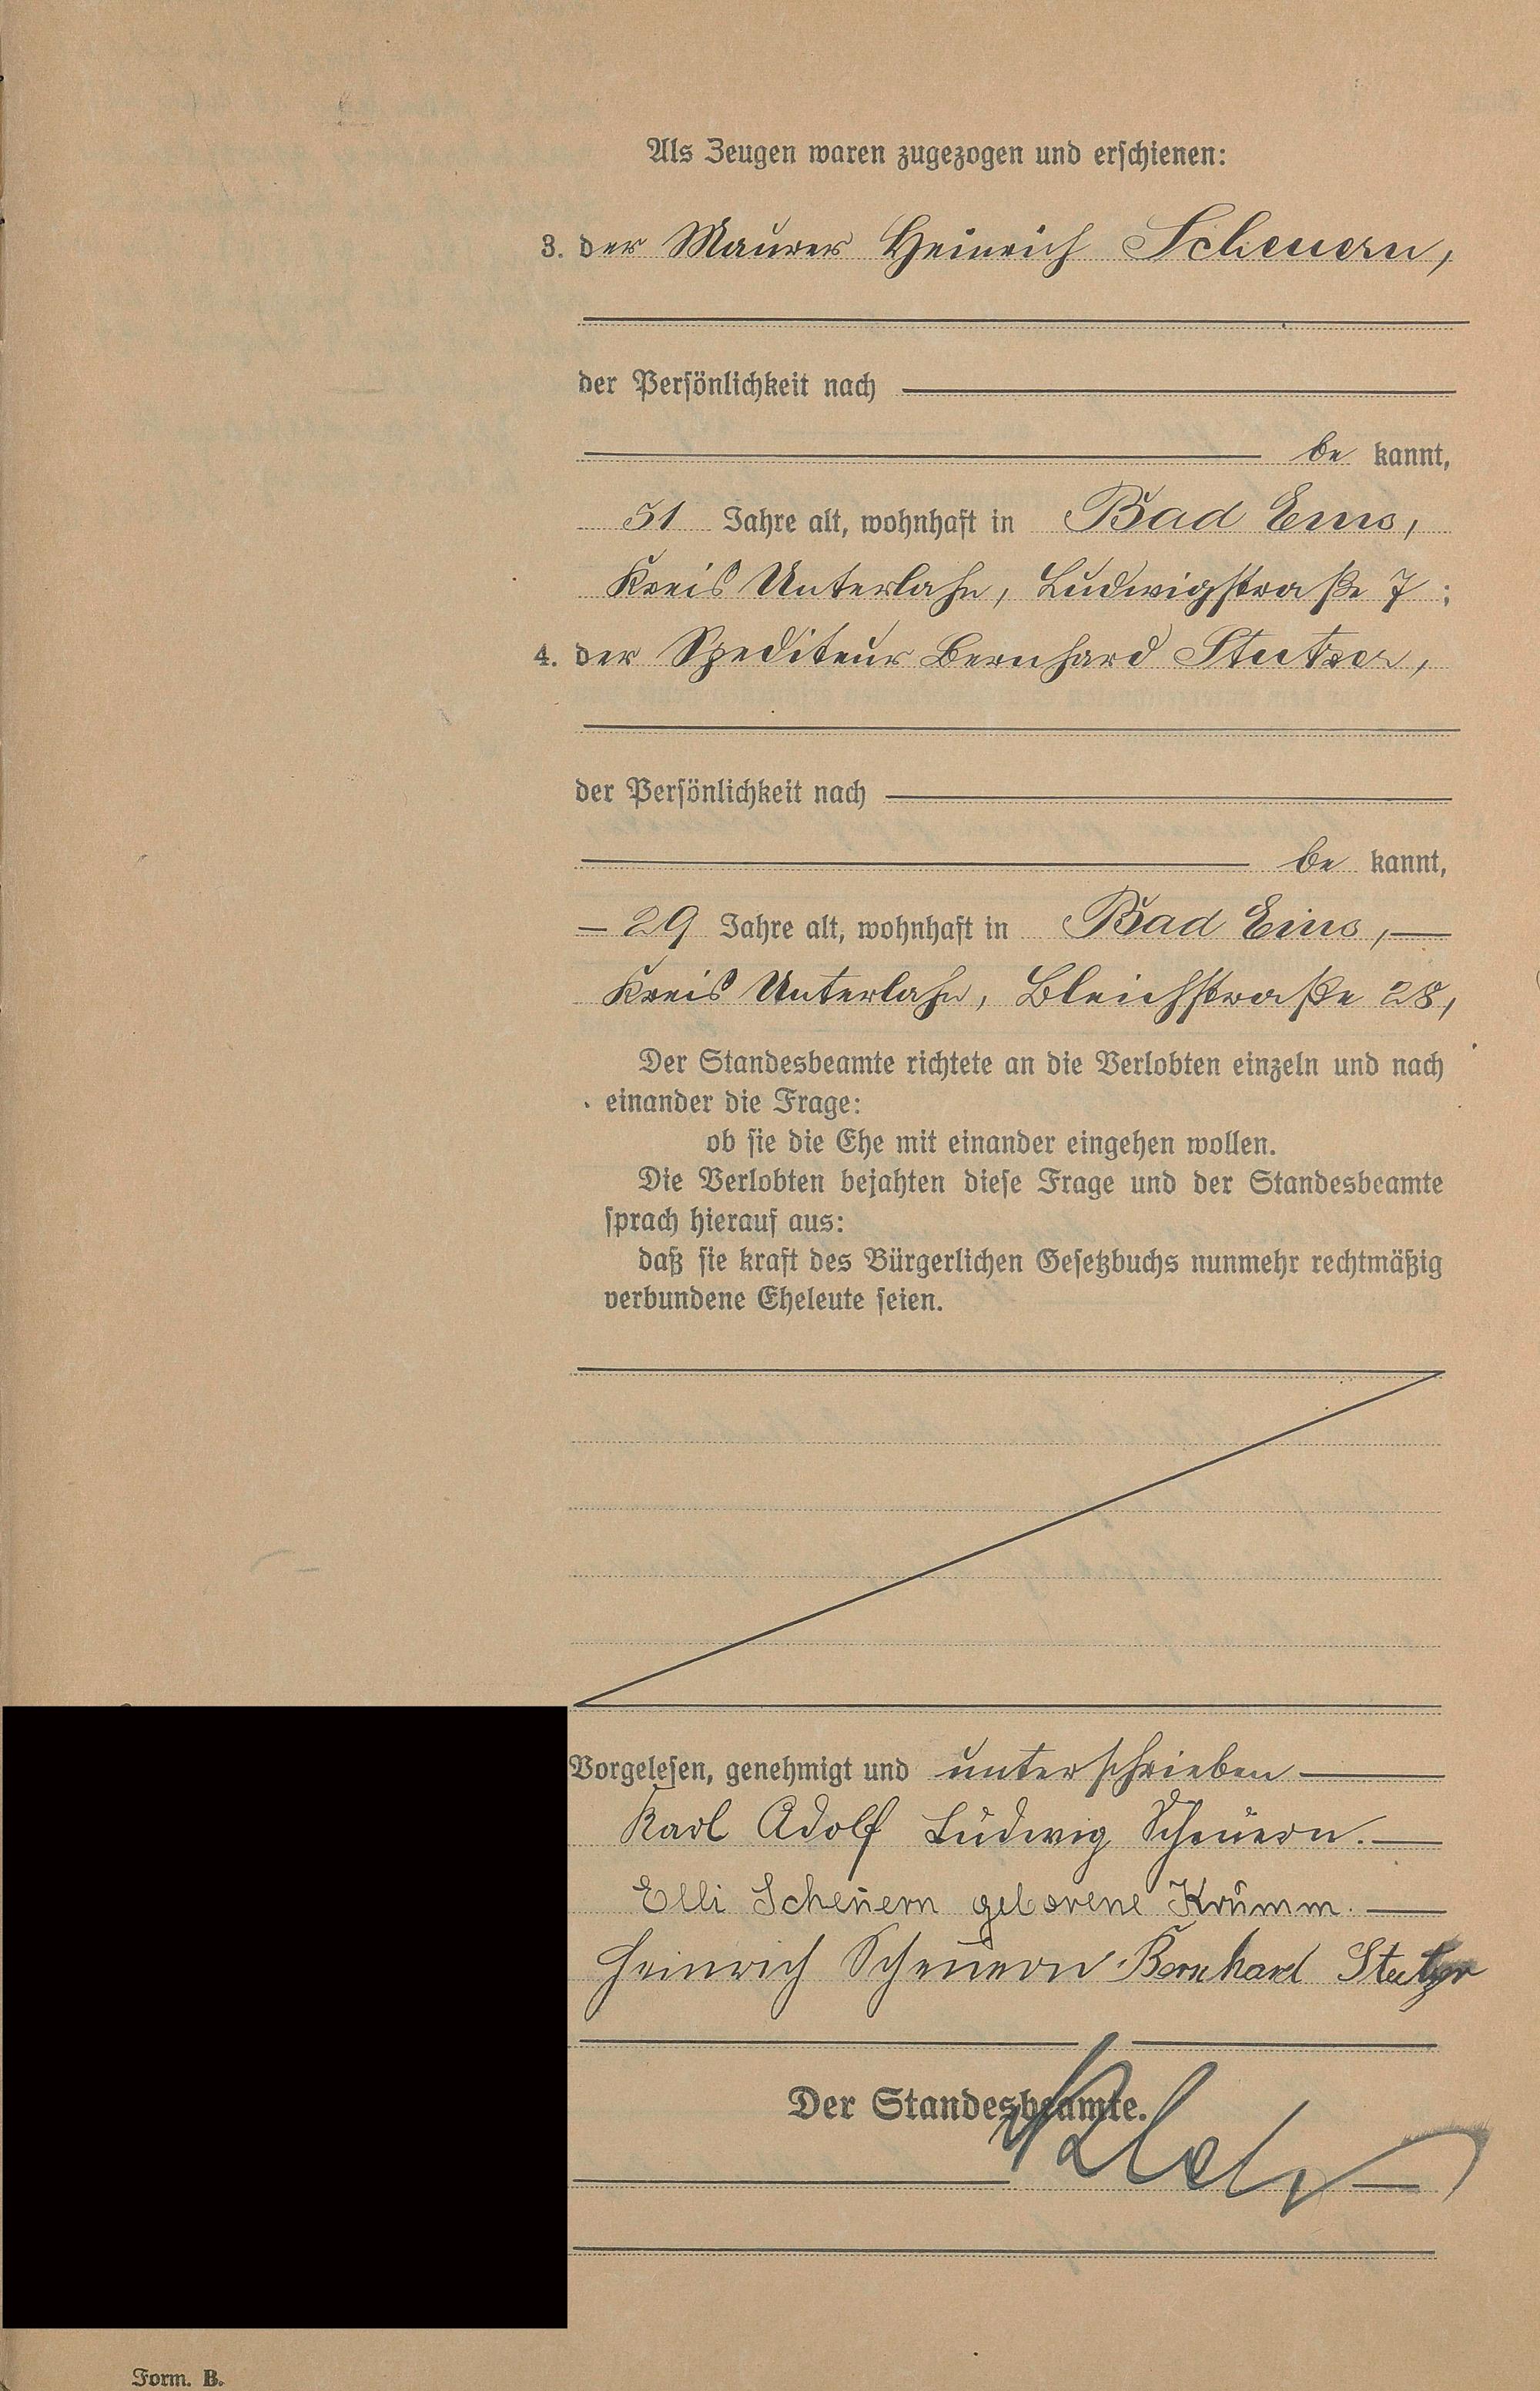 Als Zeugen waren zugezogen und erschienen:
3. der Maurer Heinrich Scheuern,
der Persönlichkeit nach
be kannt,
51 Jahre alt, wohnhaft in Bad Ems,
Kreis Unterlahn, Ludwigstraße 7;
4. der Spediteur Bernhard Stutzer,
der Persönlichkeit nach
be kannt,
29 Jahre alt, wohnhaft in Bad Ems,
Kreis Unterlahn, Bleichstraße 28,
Der Standesbeamte richtete an die Verlobten einzeln und nach
einander die Frage:
ob sie die Ehe mit einander eingehen wollen.
Die Verlobten bejahten diese Frage und der Standesbeamte
sprach hierauf aus:
daß sie kraft des Bürgerlichen Gesetzbuchs nunmehr rechtmäßig
verbundene Eheleute seien.
Vorgelesen, genehmigt und unterschrieben
Karl Adolf Ludwig Scheuern.
Elli Scheuern geborene Krumm.
Heinrich Scheuern Bernhard Stutzer
Der Standesbeamte.
Form. B.